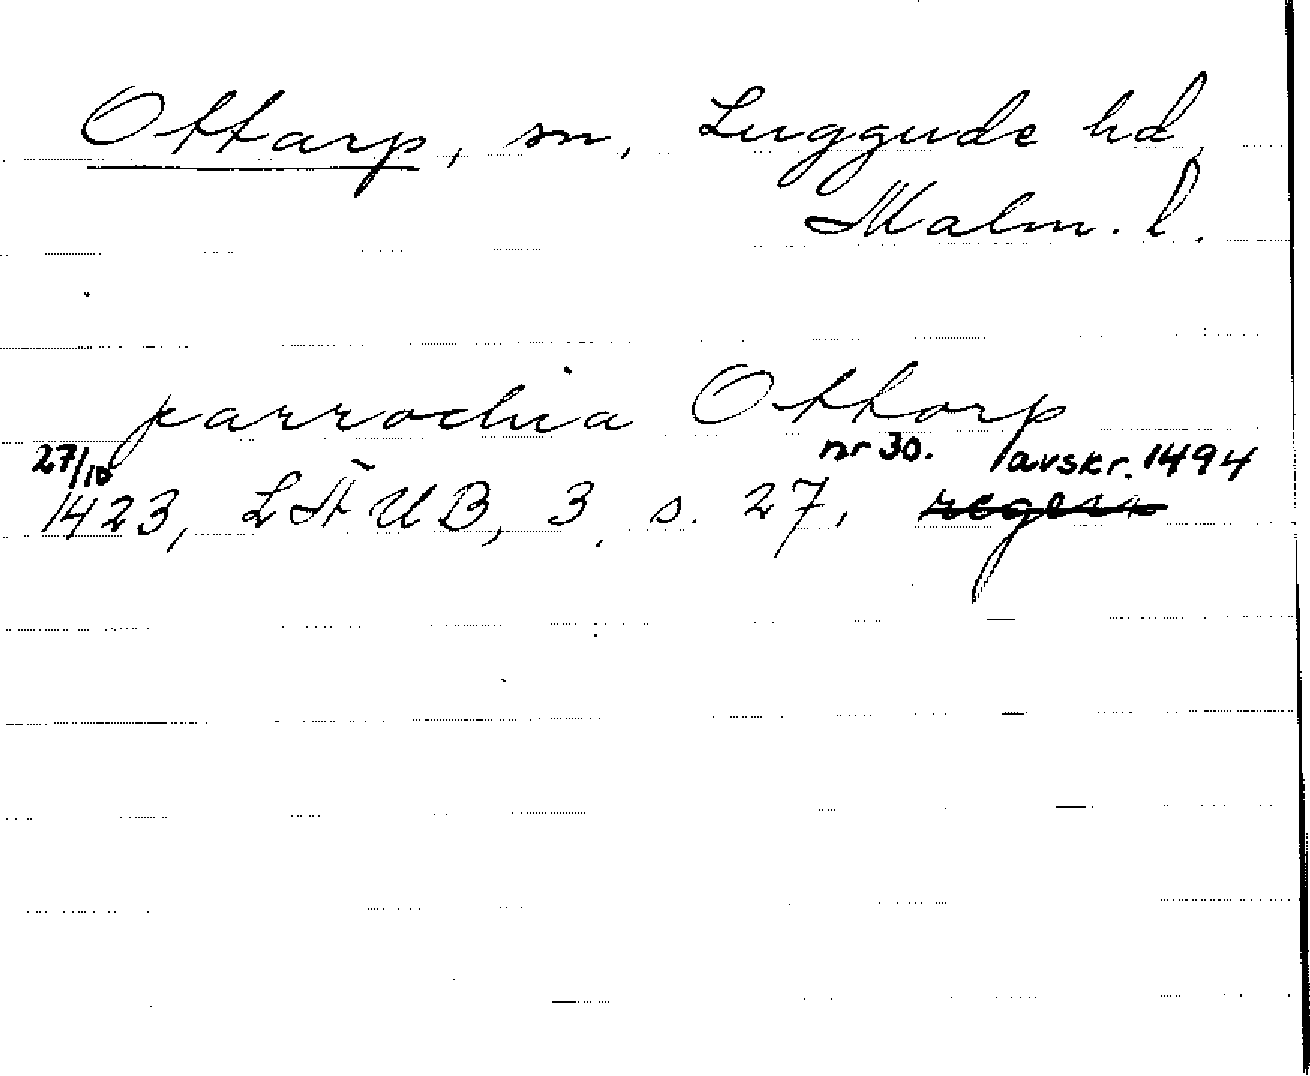 Ottarp, sn, Luggude hd,
Malm. l.
parrochia Ottorp
27/10 nr 30. avskr. 1494
1423, LÄUB, 3, s. 27,